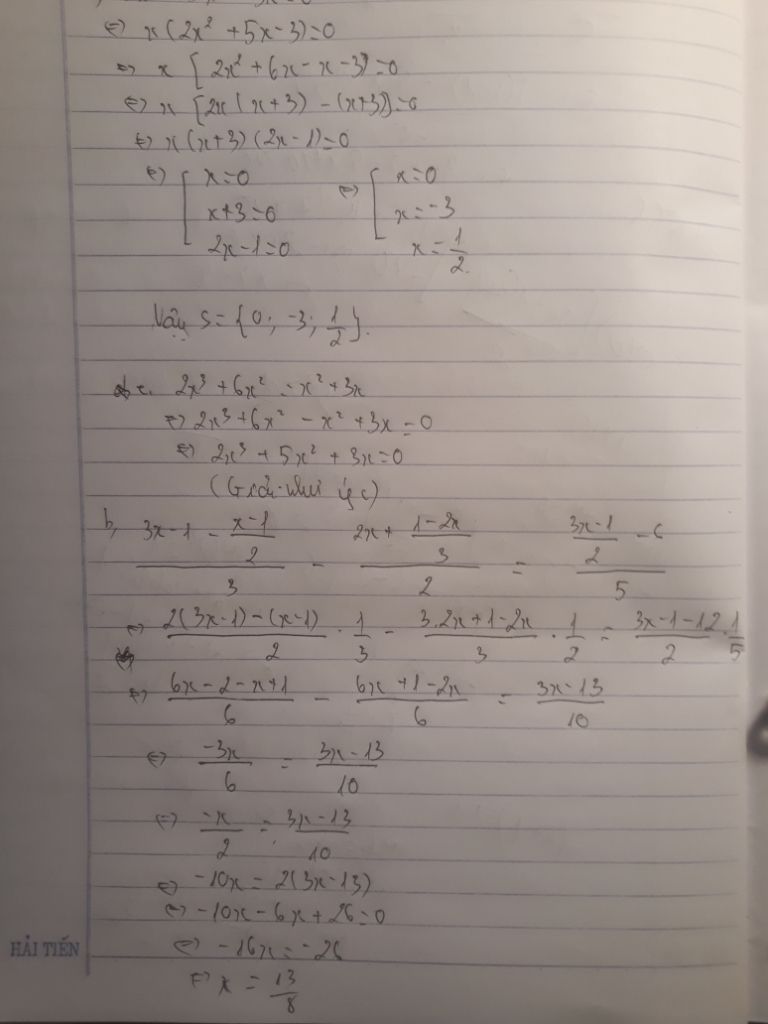 ⇔ x(2x² + 5x - 3) = 0
⇔ x [2x² + 6x - x - 3] = 0
⇔ x [2x(x+3) - (x+3)] = 0
⇔ x(x+3)(2x-1) = 0
⇔ [ x=0 ⇔ [ x=0
x+3=0 x=-3
2x-1=0 x=1/2
Vậy S = {0; -3; 1/2}.
c. 2x³ + 6x² = x² + 3x
⇔ 2x³ + 6x² - x² + 3x = 0
⇔ 2x³ + 5x² + 3x = 0
(Giải như ý c)
b, (3x-1 - (x-1)/2)/3 - (2x + (1-2x)/3)/2 = ((3x-1)/2 - 6)/5
⇔ (2(3x-1) - (x-1))/2 . 1/3 - (3.2x+1-2x)/3 . 1/2 = (3x-1-12)/2 . 1/5
⇔ (6x-2-x+1)/6 - (6x+1-2x)/6 = (3x-13)/10
⇔ -3x/6 = (3x-13)/10
⇔ -x/2 = (3x-13)/10
⇔ -10x = 2(3x-13)
⇔ -10x - 6x + 26 = 0
⇔ -16x = -26
⇔ x = 13/8
HẢI TIẾN